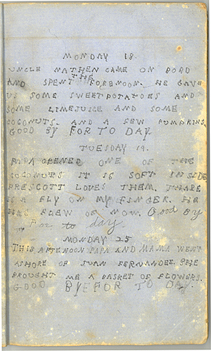 MONDAY 18.
UNCLE NATHEN CAME ON BORD
THE
AND SPENT FORENOON. HE GAVE
US SOME SWEET POTATOES AND
SOME LIMEJUICE AND SOME
COCONUTS. AND A FEW PUMPKINS.
GOOD BY FOR TO DAY.
TUESDAY 19.
PAPA OPENED ONE OF THE
COCONUTS IT IS SOFT INSIDE
PRESCOTT LOVES THEM. THERE
IS A FLY ON MY FINGER. HE
HAS FLEW OF NOW. Good By
For to day
MONDAY 25
THIS AFTERNOON PAPA AND MAMA WENT
ASHORE OF JUAN FERNANDEE. SHE
BROUGHT ME A BASKET OF FLOWERS.
GOOD BY FOR TO DAY.